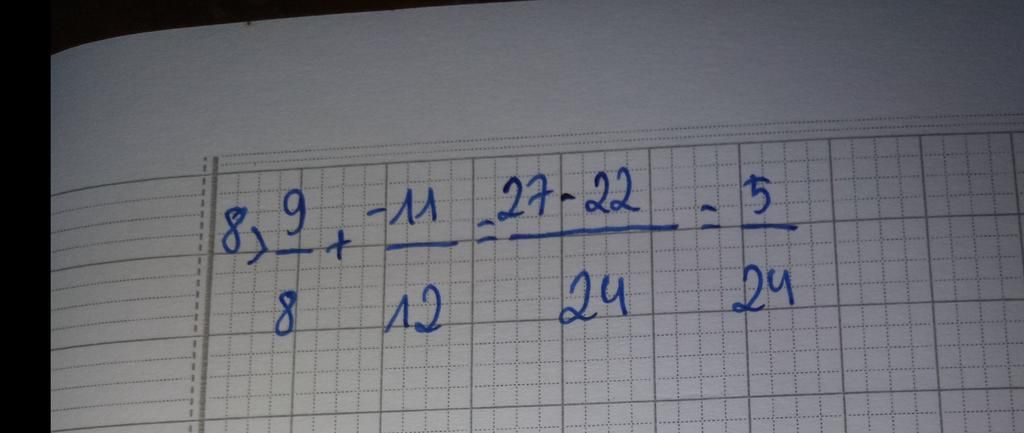 8, 9/8 + -11/12 = 27-22/24 = 5/24